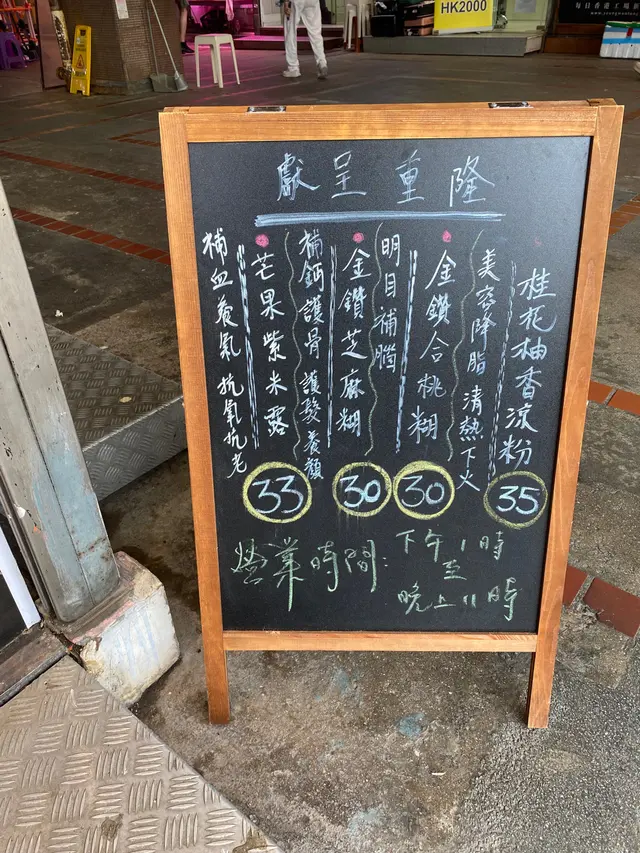 HK2000
隆重呈獻
桂花柚香涼粉
35
美容降脂 清熱下火
金鑽合桃糊
30
明目補腦
金鑽芝麻糊
30
補鈣護骨 護髮養顏
芒果紫米露
33
補血養氣 抗氧抗老
營業時間:
下午1時
至
晚上11時